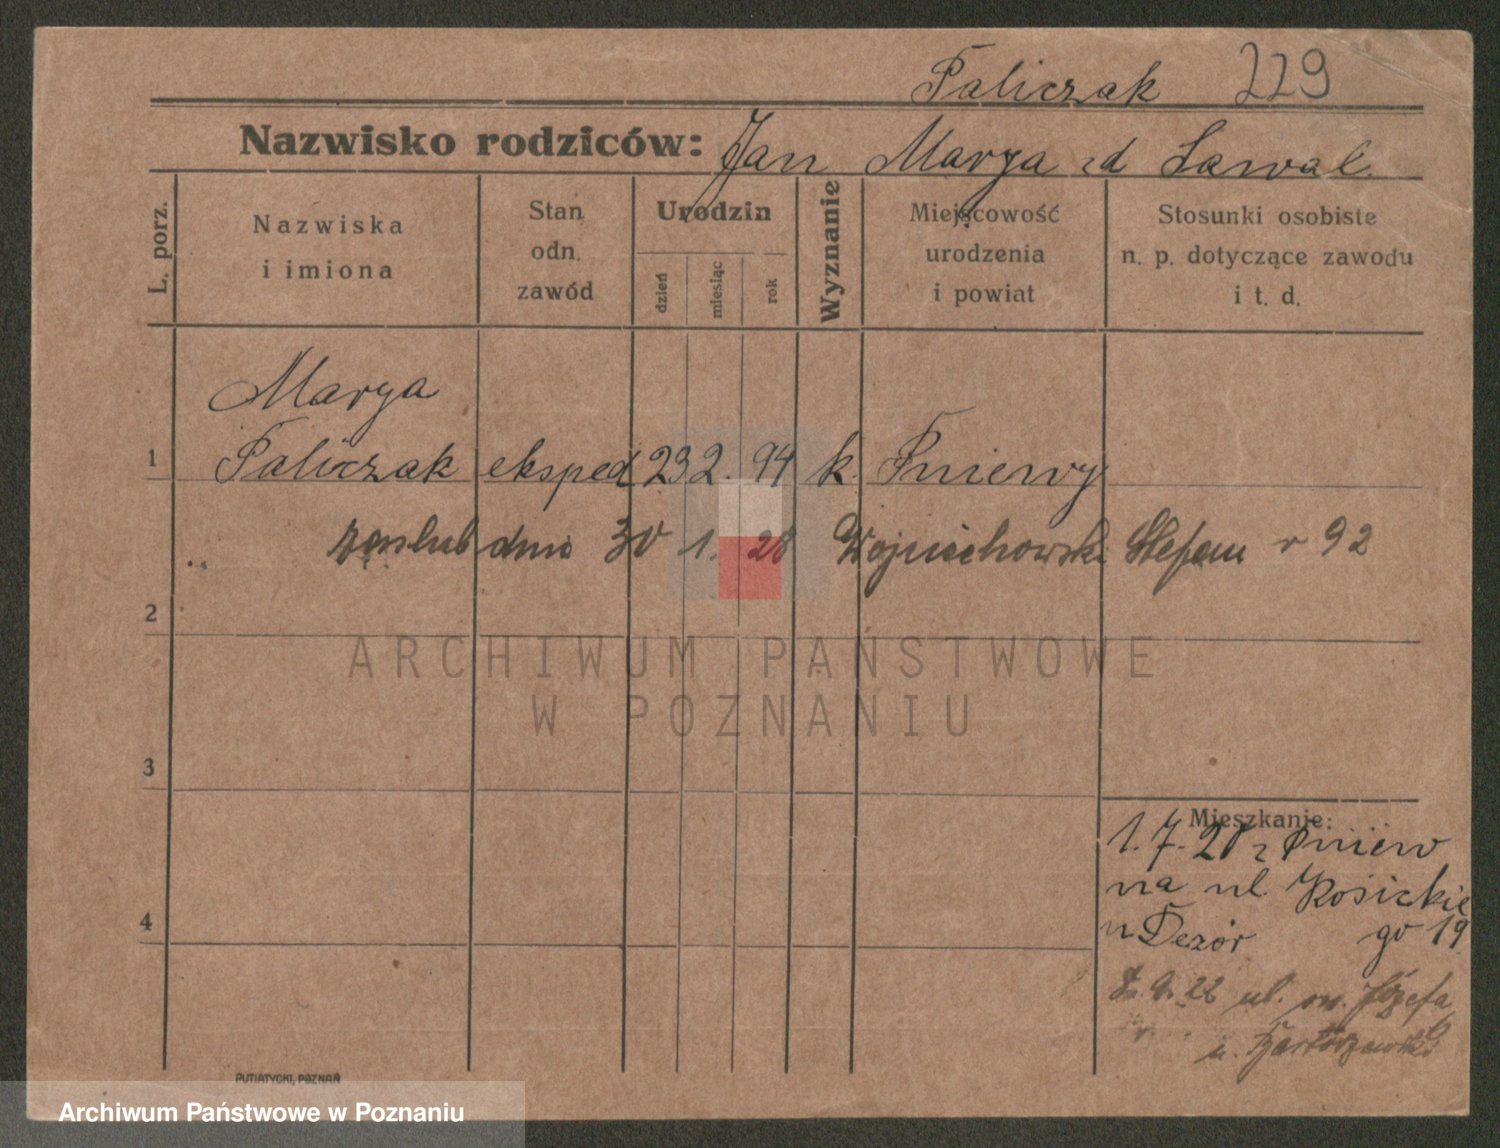 Paliczak 229
Nazwisko rodziców: Jan Marya zd Nawal
L. porz.
Nazwiska
i imiona
Stan
odn.
zawód
Urodzin
dzień
miesiąc
rok
Wyznanie
Miejscowość
urodzenia
i powiat
Stosunki osobiste
n. p. dotyczące zawodu
i t. d.
Marya
1 Paliczak eksped 23 2. 94 k. Pniewy
zaślub dnia 30 1. 28 Wojciechowski Stefan r 92
2
ARCHIWUM PAŃSTWOWE
W POZNANIU
3
Mieszkanie:
1. 7. 20 z Pniew
na ul. Kosickie
4
u Dezór go 19
9. 22 ul. św. Józefa
u.
PUTIATYCKI, POZNAŃ
Archiwum Państwowe w Poznaniu